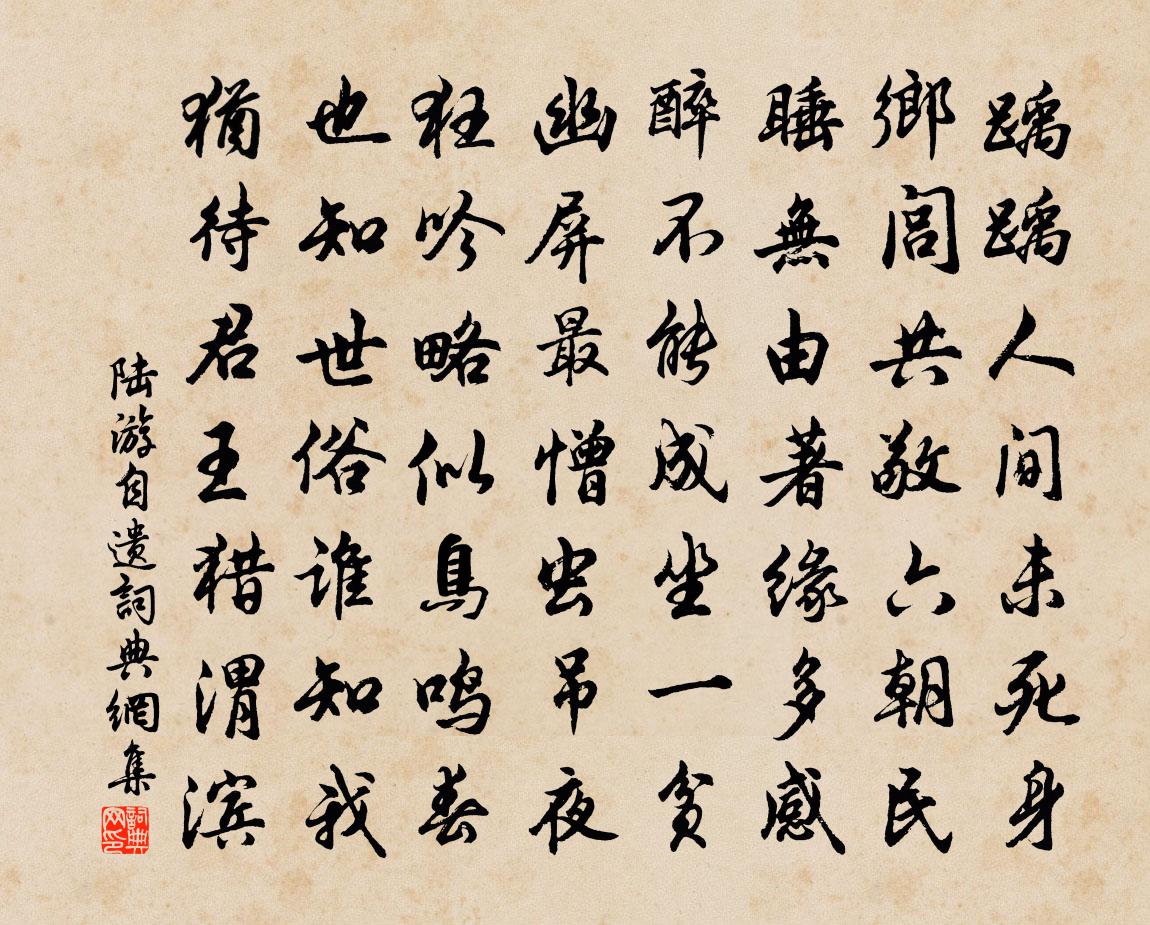 踽踽人间未死身
鄉闾共敬六朝民
睡無由著缘多感
醉不能成坐一贫
幽屏最憎虫吊夜
狂吟略似鳥鸣春
也知世俗谁知我
猶待君王猎渭滨
陆游自遣詞典網集
詞典网印